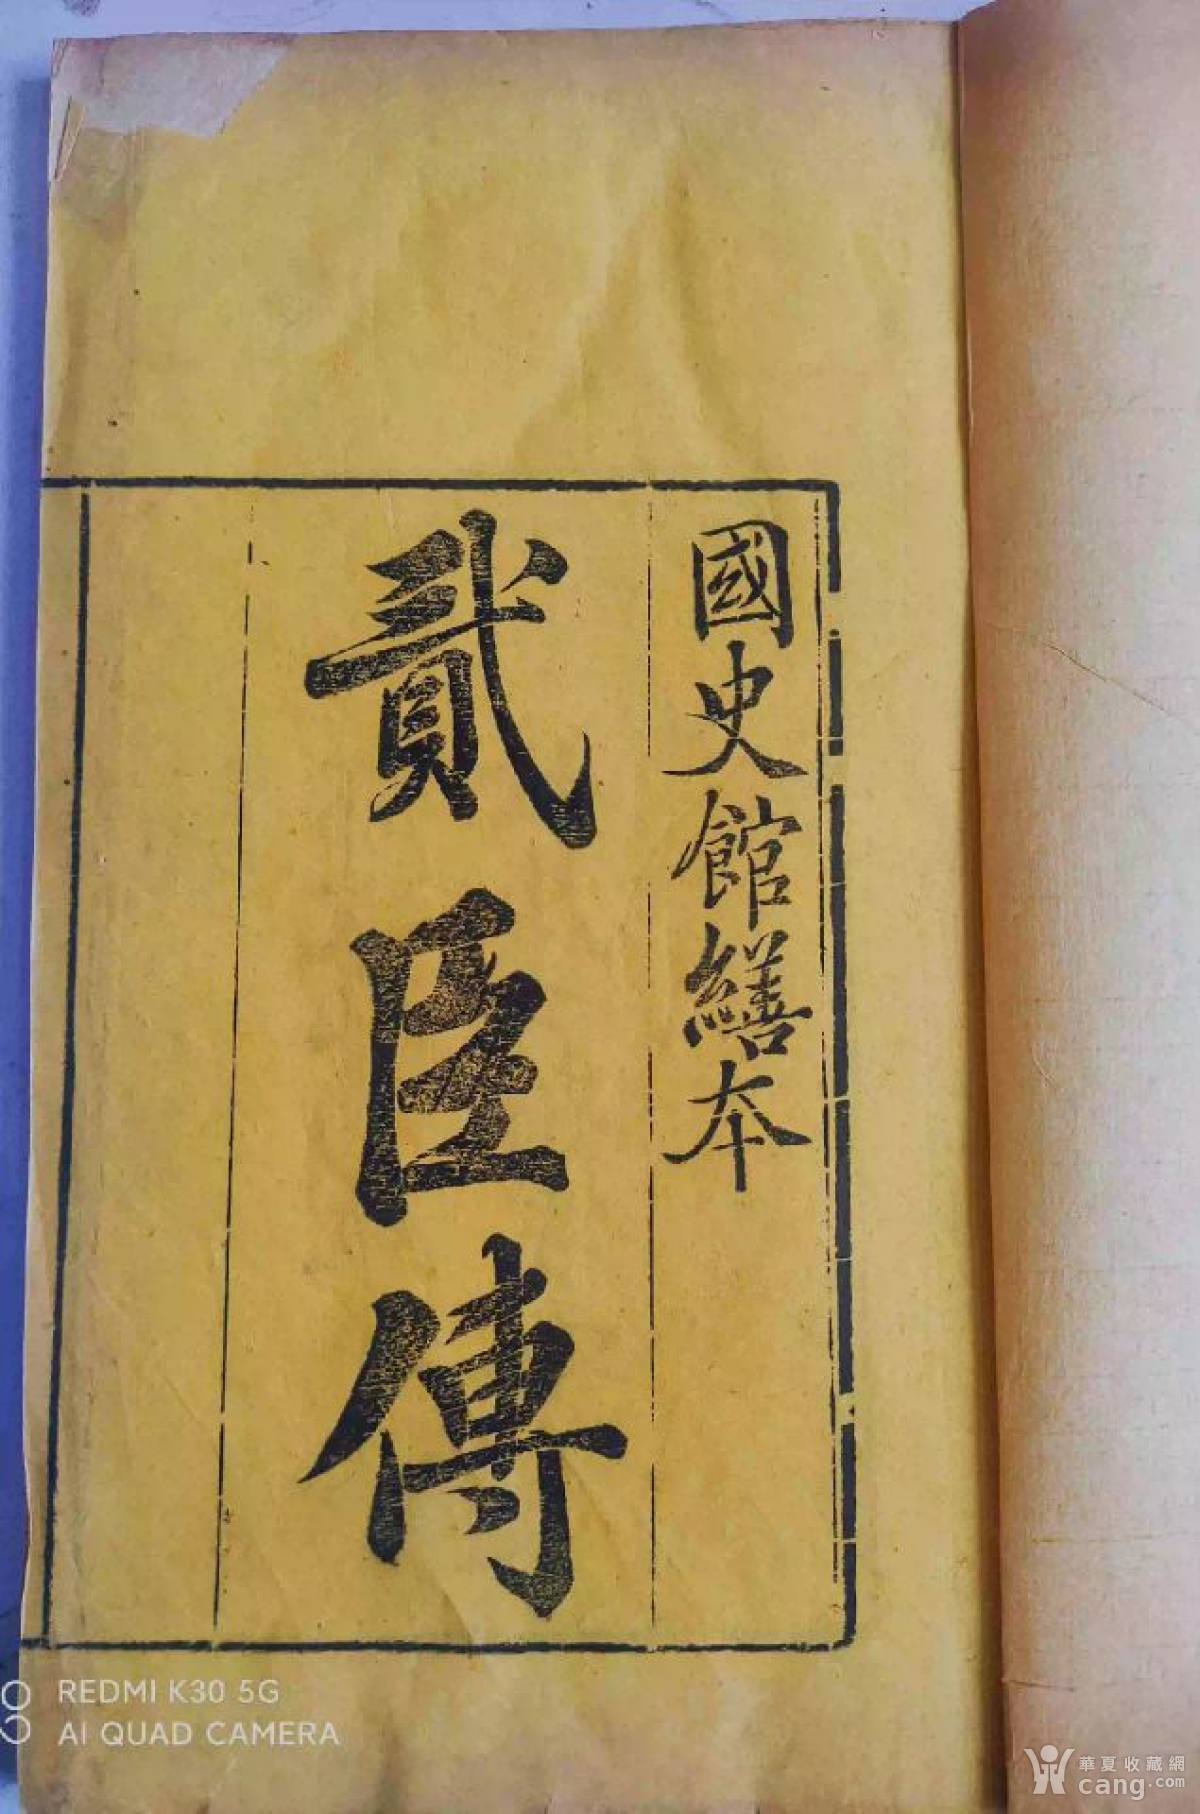 國史館繕本
貳臣傳
REDMI K30 5G
AI QUAD CAMERA
華夏收藏網
cang.com